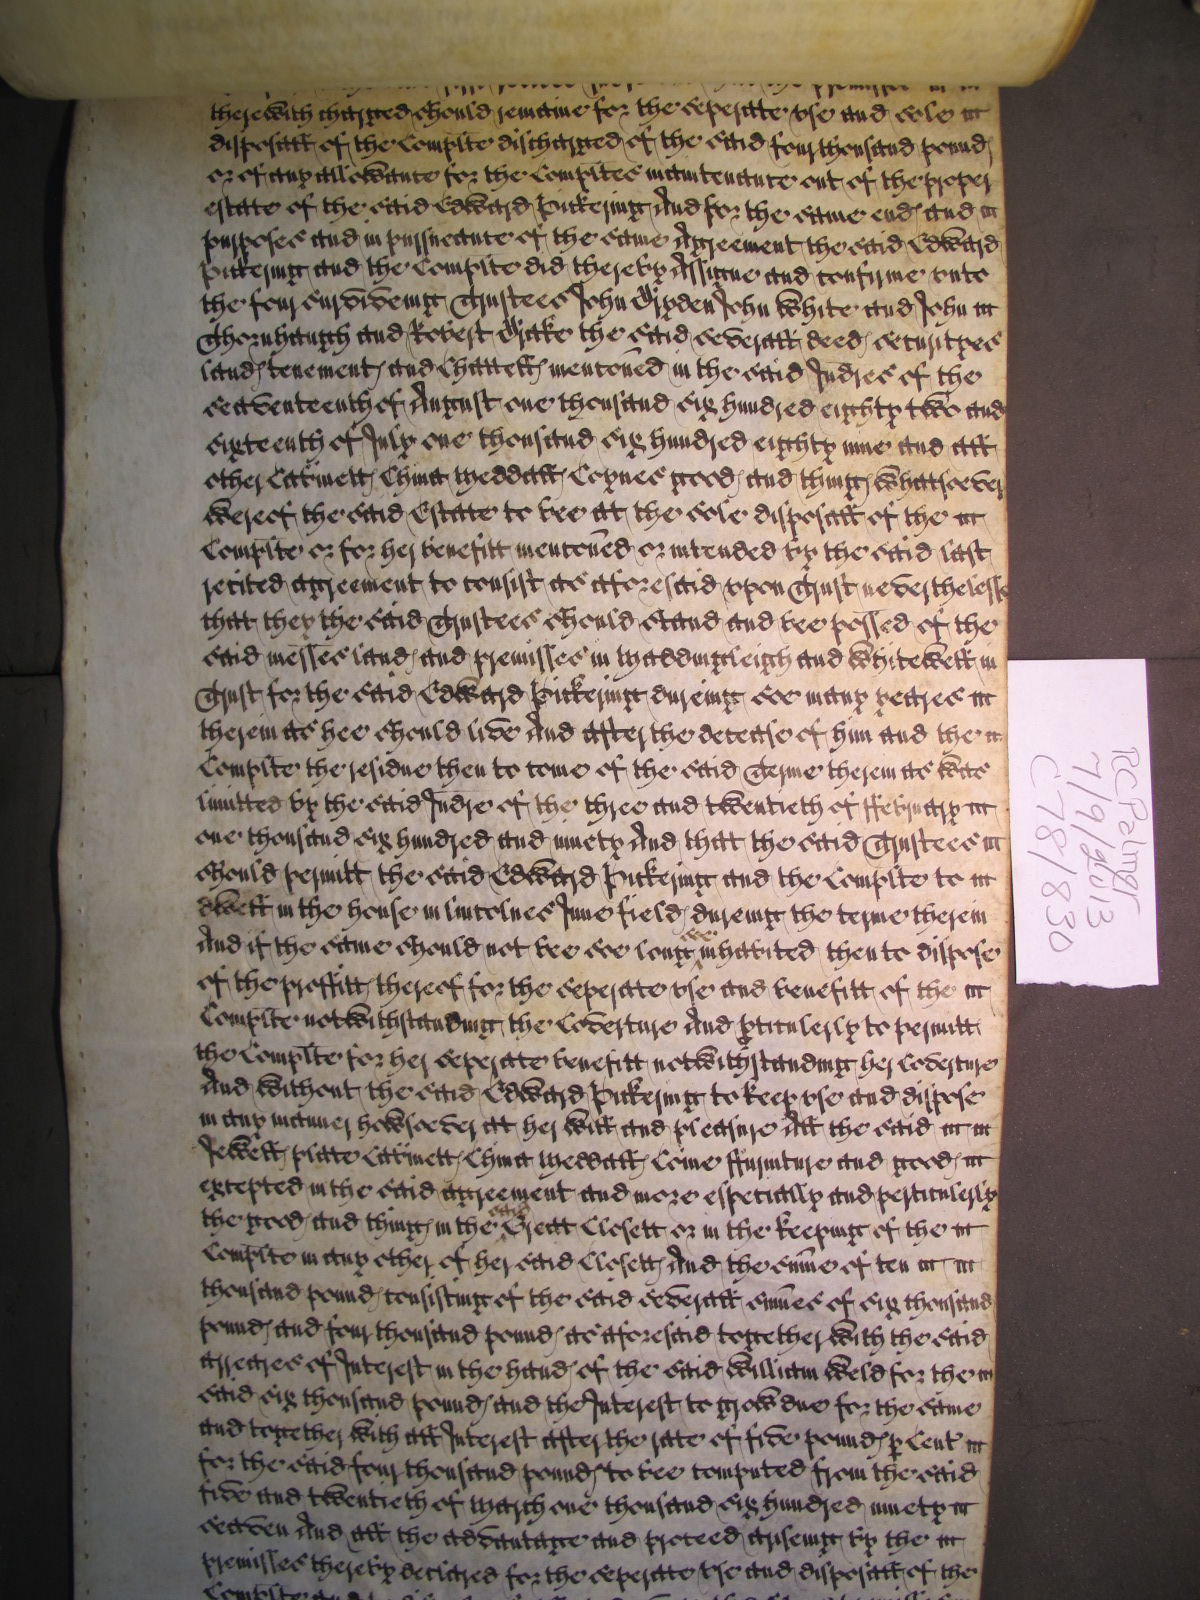 therewith charged should remaine for the seperate use and sole
disposall of the Complte discharged of the said four thousand pounds
or of any allowance for the Compltes maintenance out of the proper
estate of the said Edward Pickering And for the same ends and
purposes and in pursueance of the same Agreement the said Edward
Pickering and the Complte did thereby Assigne and confirme unto
the four surviveing Trustees John Dryden John White and John
Thornhaugh and Robert Drake the said severall deeds securityes
lands tenements and Chattells mentoned in the said Indres of the
seaventeenth of August one thousand six hundred eighty two and
sixteenth of July one thousand six hundred eighty nine and all
other Cabinetts China Meddalls Coynes goods and things whatsoever
wereof the said Estate to bee at the sole disposall of the
Complte or for her benefitt mentoned or intended by the said last
recited agreement to consist as aforesaid upon Trust neverthelesse
that they the said Trustees should stand and bee possed of the
said messes lands and premisses in Maddingleigh and Whitewell in
Trust for the said Edward Pickering dureing soe many yeares
therein as hee should live And after the decease of him and the
Complte the residue then to come of the said Terme therein as was
limitted by the said Indre of the three and twentieth of ffebruary
one thousand six hundred and ninety And that the said Trustees
should permitt the said Edward Pickering and the Complte to
dwell in the house in lincolnes Inne fields dureing the terme therein
And if the same should not bee soe long soe inhabited then to dispose
of the proffitts thereof for the seperate use and benefitt of the
Complte notwithstanding the Coverture And pticulerly to permitt
the Complte for her seperate benefitt notwithstanding her Coverture
And without the said Edward Pickering to keep use and dispose
in any manner howsoever att her will and pleasure All the said
Jewells plate Cabinetts China Meddalls Coine ffurniture and goods
excepted in the said agreement and more especially and perticulerly
the goods and things in the said Great Closett or in the keeping of the
Complte in any other of her said Closetts And the sume of ten
thousand pounds consisting of the said severall sumes of six thousand
pounds and four thousand pounds as aforesaid together with the said
arreares of Interest in the hands of the said William Weld for the
said six thousand pounds and the Interest to grow due for the same
and together with all Interest after the rate of five pounds p Cent
for the said four thousand pounds to bee computed from the said
five and twentieth of March one thousand six hundred ninety
seaven And all the advantage and proceed ariseing by the
premisses thereby declared for the seperate use and disposall of the
RC Palmer
7/9/2013
C 78/830